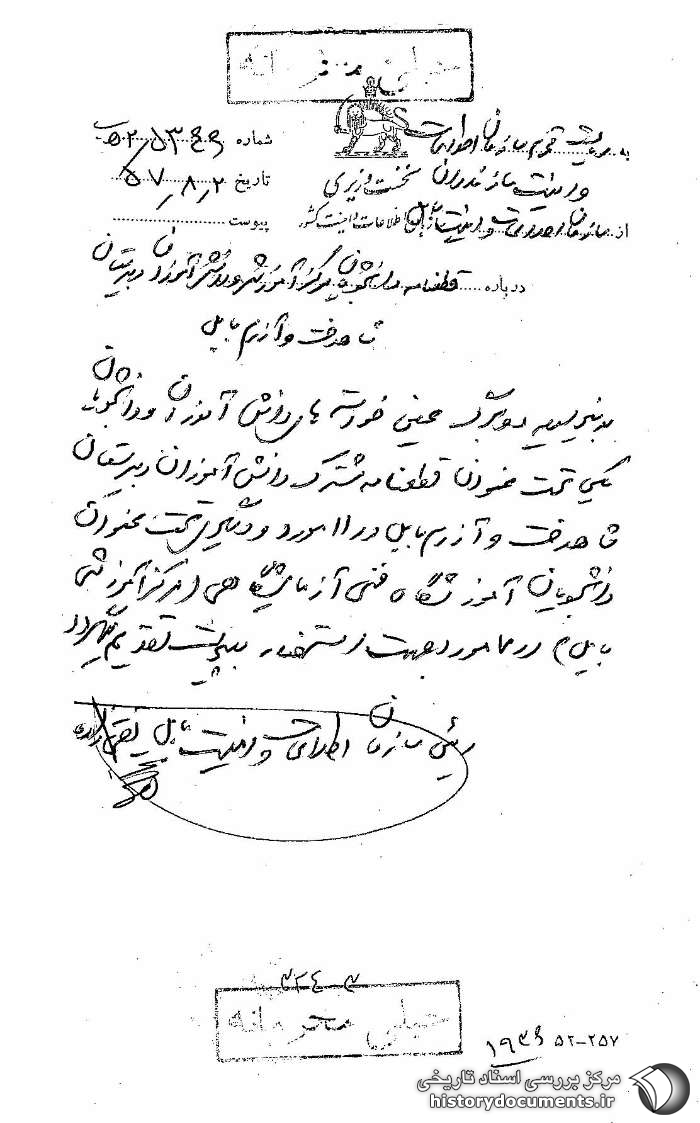 خیلی محرمانه
به ریاست محترم سازمان اطلاعات
و امنیت مازندران
نخست وزیری
از سازمان اطلاعات و امنیت بابل
اطلاعات و امنیت کشور
شماره
تاریخ ۵۷/۸/۲
پیوست
درباره قطعنامه دانشجویان مرکز آموزش و دانش آموزان دبیرستان
قناد هدف و آزرم بابل
بدینوسیله دو برگ عین خواسته های دانش آموزان و دانشجویان
یکی تحت عنوان قطعنامه مشترک دانش آموزان دبیرستان
هدف و آزرم بابل در ۱۱ مورد و دیگری تحت عنوان
دانشجویان آموزشگاه فنی آزمایشگاهی (مرکز آموزشی
بابل) در مورد جهت استحضار به پیوست تقدیم میگردد
رئیس سازمان اطلاعات و امنیت بابل
۳۲۴-۳
خیلی محرمانه
۱۹۳۶ ۵۲-۲۵۷
مرکز بررسی اسناد تاریخی
historydocuments.ir